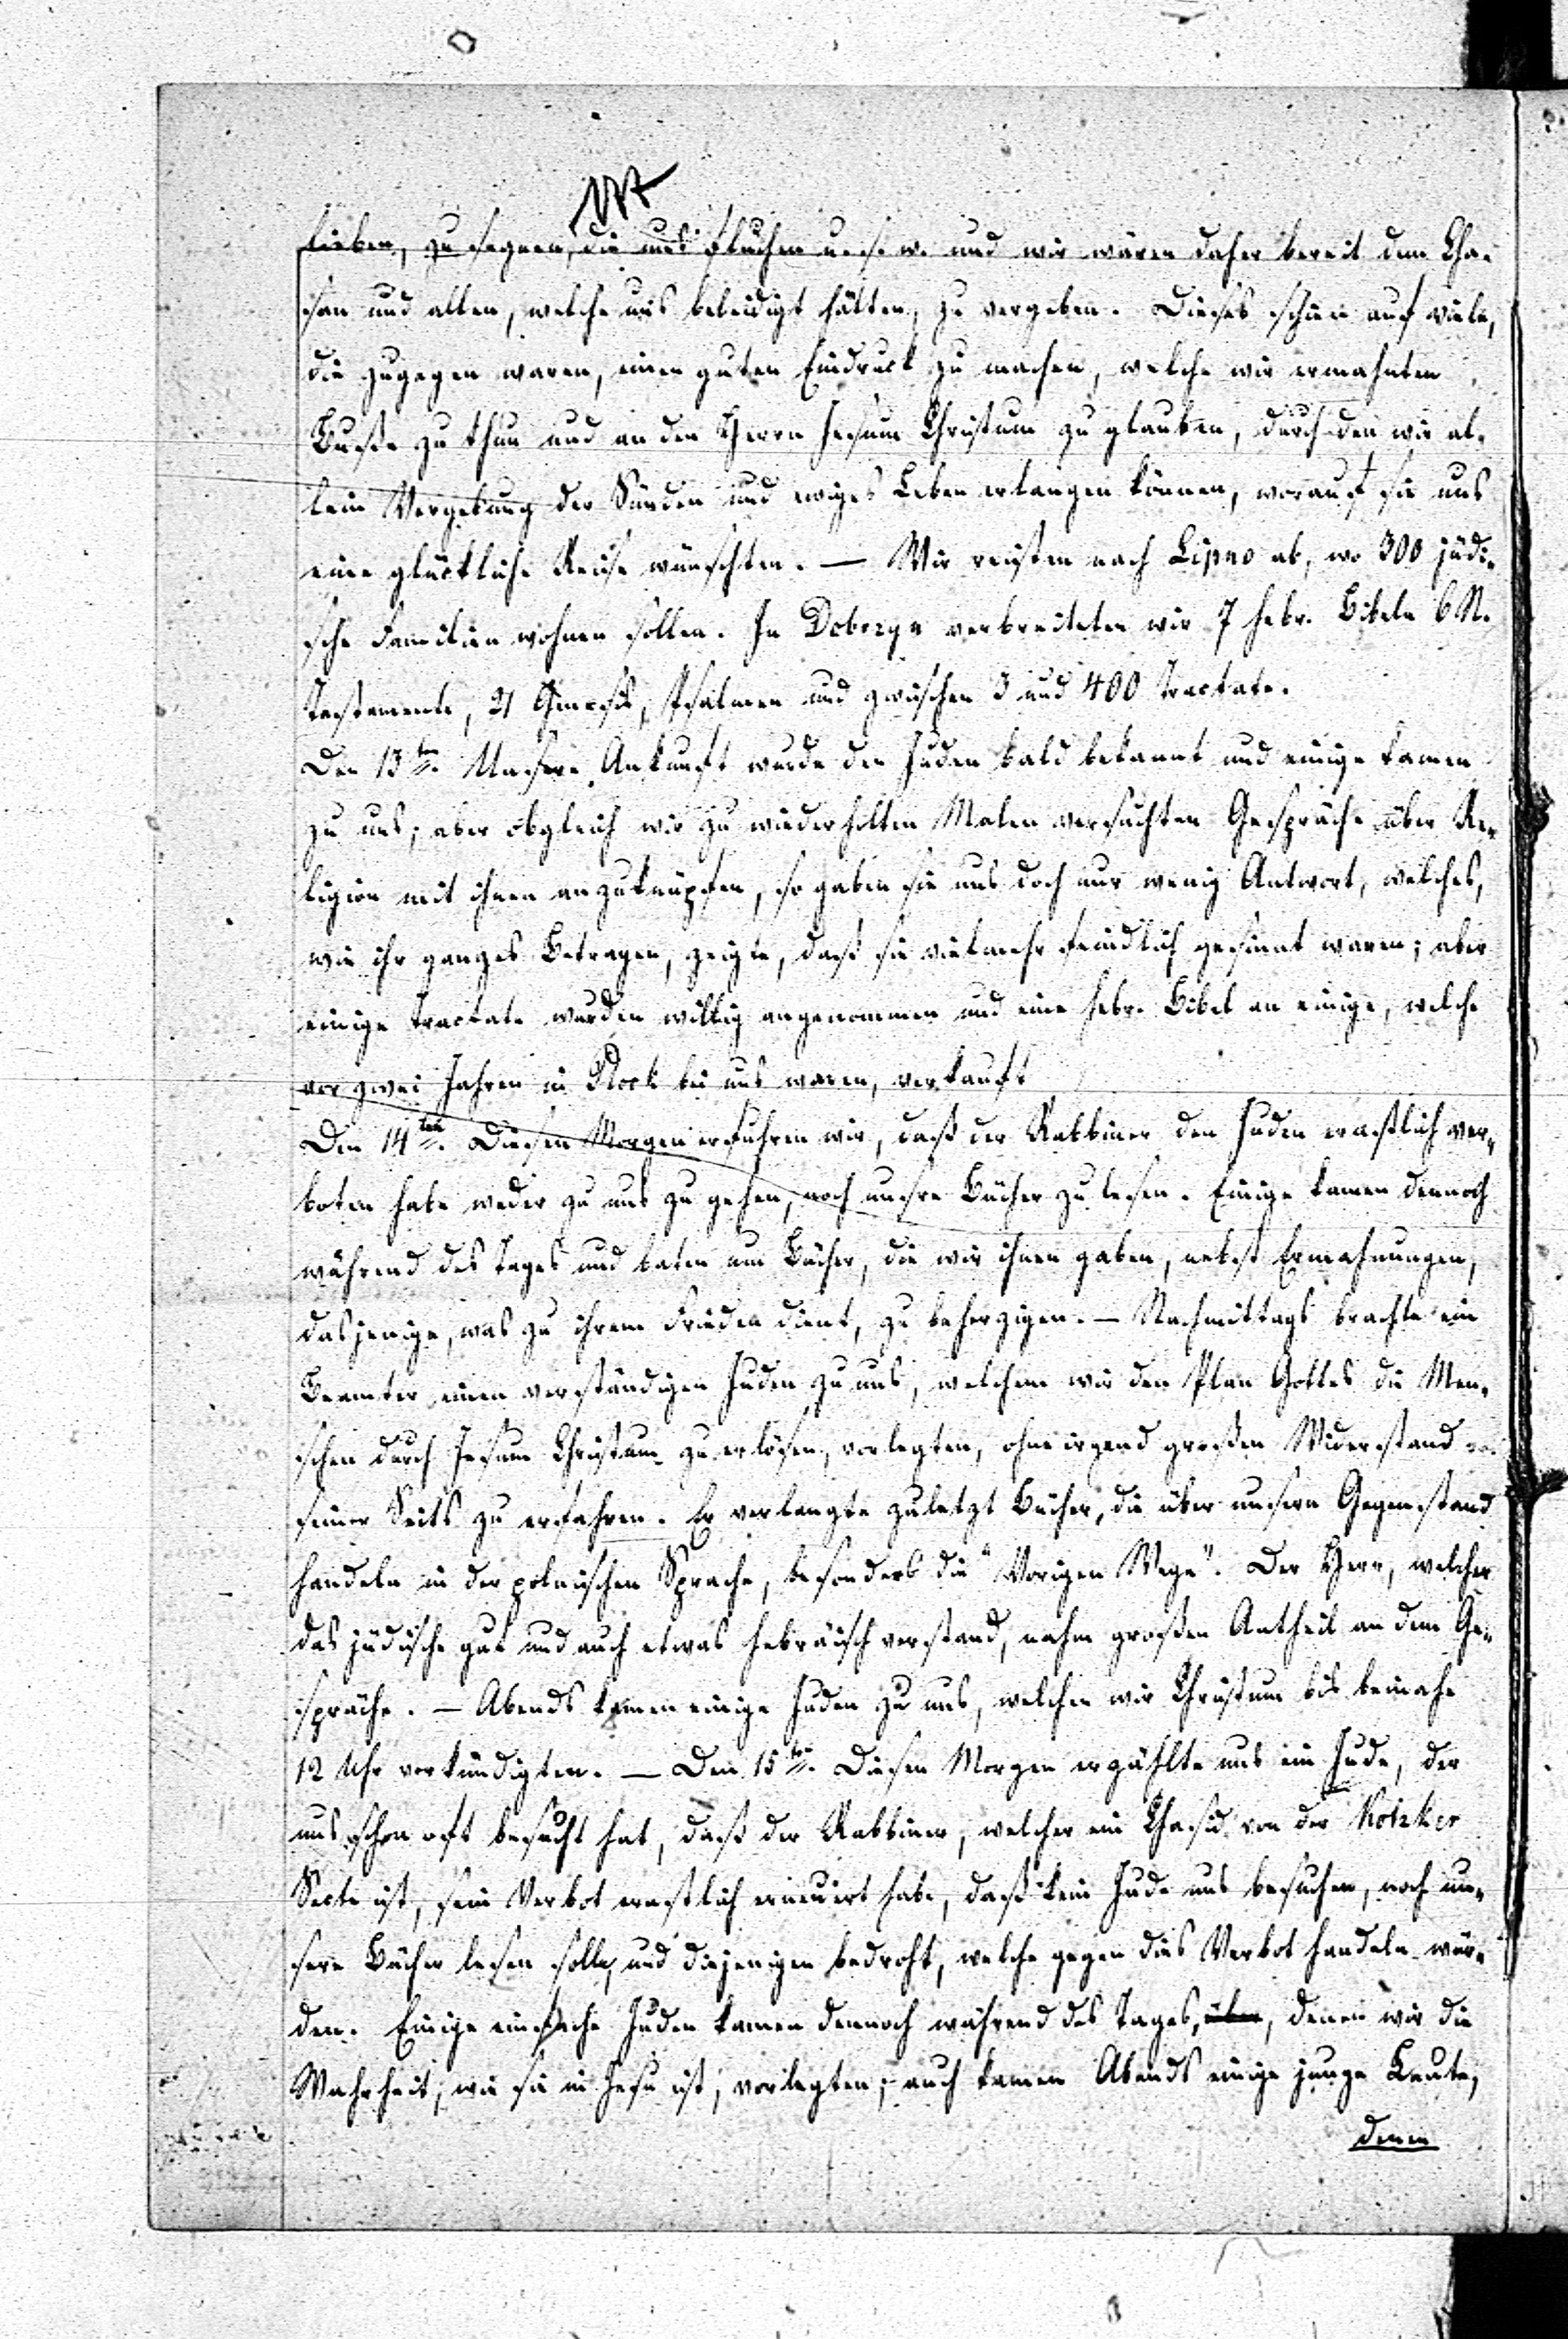 lieben, zu segnen, die uns fluchen u. s. w. und wir wären daher bereit dem Cha-
san und allen, welche uns beleidigt hätten, zu vergeben. Dieses schien auf viele,
die zugegen waren, einen guten Eindruck zu machen, welche wir ermahnten
Buße zu thun und an den Herrn Jesum Christum zu glauben, durch den wir al-
lein Vergebung der Sünden und ewiges Leben erlangen können, worauf sie uns
eine glückliche Reise wünschten. — Wir reisten nach Lipno ab, wo 300 jüdi-
sche Familien wohnen sollen. In Dobrzyn verbreiteten wir 7 hebr. Bibeln 6 N.
Testamente, 21 Genesis, Psalmen und zwischen 3 und 400 Tractate.
Den 13ten. Unsere Ankunft wurde den Juden bald bekannt und einige kamen
zu uns; aber obgleich wir zu wiederholten Malen versuchten Gespräche über Re-
ligion mit ihnen anzuknüpfen, so gaben sie uns doch nur wenig Antwort, welches,
wie ihr ganzes Betragen, zeigte, daß sie vielmehr feindlich gesinnt waren; aber
einige Tractate wurden willig angenommen und eine hebr. Bibel an einige, welche
vor zwei Jahren in Plock bei uns waren, verkauft
Den 14ten. Diesen Morgen erfuhren wir, daß der Rabbiner den Juden ernstlich ver-
boten habe weder zu uns zu gehen, noch unsre Bücher zu lesen. Einige kamen dennoch
während des Tages und baten um Bücher, die wir ihnen gaben, nebst Ermahnungen,
dasjenige, was zu ihrem Frieden dient, zu beherzigen. — Nachmittags brachte ein
Beamter einen verständigen Juden zu uns, welchem wir den Plan Gottes die Men-
schen durch Jesum Christum zu erlösen, vorlegten, ohne irgend großen Widerstand
seiner Seits zu erfahren. Er verlangte zuletzt Bücher, die über unsern Gegenstand
handeln in der polnischen Sprache, besonders die "Vorigen Wege". Der Herr, welcher
das jüdische gut und auch etwas hebräisch verstand, nahm großen Antheil an dem Ge-
spräche. — Abends kamen einige Juden zu uns, welchen wir Christum bis beinahe
12 Uhr verkündigten. — Den 15ten. Diesen Morgen erzählte uns ein Jude, der
uns schon oft besucht hat, daß der Rabbiner, welcher ein Chasid von der Kotzker
Secte ist, sein Verbot ernstlich erneuert habe, daß kein Jude uns besuchen, noch un-
sere Bücher lesen solle, und diejenigen bedroht, welche gegen dies Verbot handeln wür-
den. Einige einfache Juden kamen dennoch während des Tages, denen wir die
Wahrheit, wie sie in Jesu ist, vorlegten; auch kamen Abends einige junge Leute,
denen